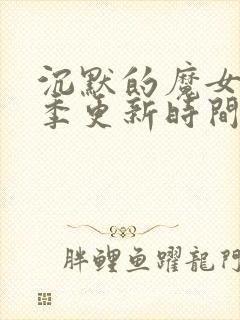 沉默的魔女
季更新時間
胖鲤鱼躍龍門